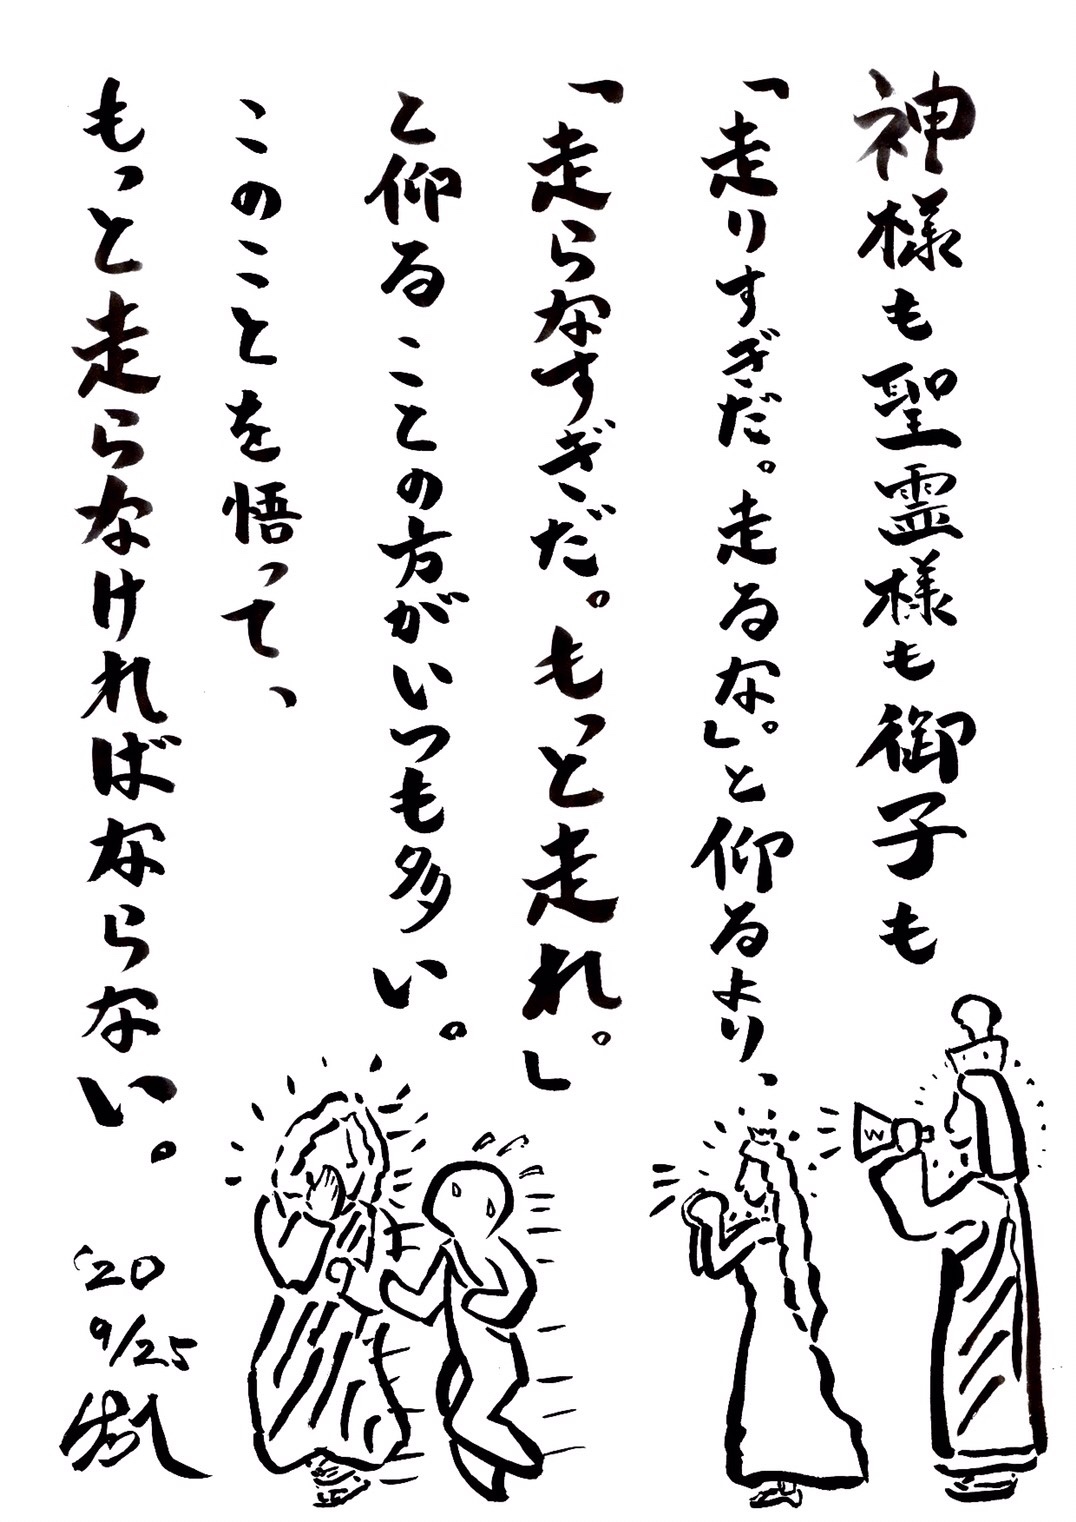 神様も聖霊様も御子も
「走りすぎだ。走るな。」と仰るより、
「走らなすぎだ。もっと走れ。」
と仰ることの方がいつも多い。
このことを悟って、
もっと走らなければならない。
'20
9/25
W